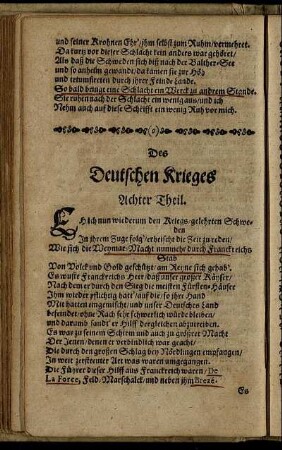 und seiner Krohnen Ehr'/ ihm selbst zum Ruhm/ vermehret.
Da kurtz vor dieser Schlacht kein anders war gehöret/
Als daß die Schweden sich biß nach der Balther-See
und so anheim gewandt/ da kamen sie zur Höh
und triumfireten durch ihrer Feinde Lande.
So bald bringt eine Schlacht ein Werck zu andrem Stande.
Sie ruhen nach der Schlacht ein wenig aus/ und ich
Nehm auch auf diese Schrifft ein wenig Ruh vor mich.
(o)
Des
Deutschen Krieges
Achter Theil.
Eh ich nun wiederum den Kriegs-gelehrten Schwe-
den
In ihrem Zuge folg'/ erheischt die Zeit zu reden/
Wie sich die Weymar-Macht nunmehr durch Franckreichs
Stad
Von Volck und Gold geschützt/ am Reyne sich gehab'.
Es wuste Franckreichs Herr/ daß unser grosser Käyser/
Nach dem er durch den Sieg die meisten Fürsten-Häuser
Ihm wieder pflichtig hatt'/ und die/ so ihr Hand
Mit hatten eingemischt/ und unser Deutsches Land
befeindet/ ohne Rach sehr schwerlich würde bleiben/
und darumb sandt' er Hilff dergleichen abzutreiben.
Es war zu seinem Schirm und auch zu grösrer Macht
Der Jenen/ denen er verbindlich war geacht/
Die durch den grossen Schlag bey Nördlingen empfangen/
In weit zerstreuter Art was waren umgegangen.
Die Führer dieser Hilff aus Franckreich waren/ De
La Force, Feld-Marschalck/ und neben ihm Brezé.
Es